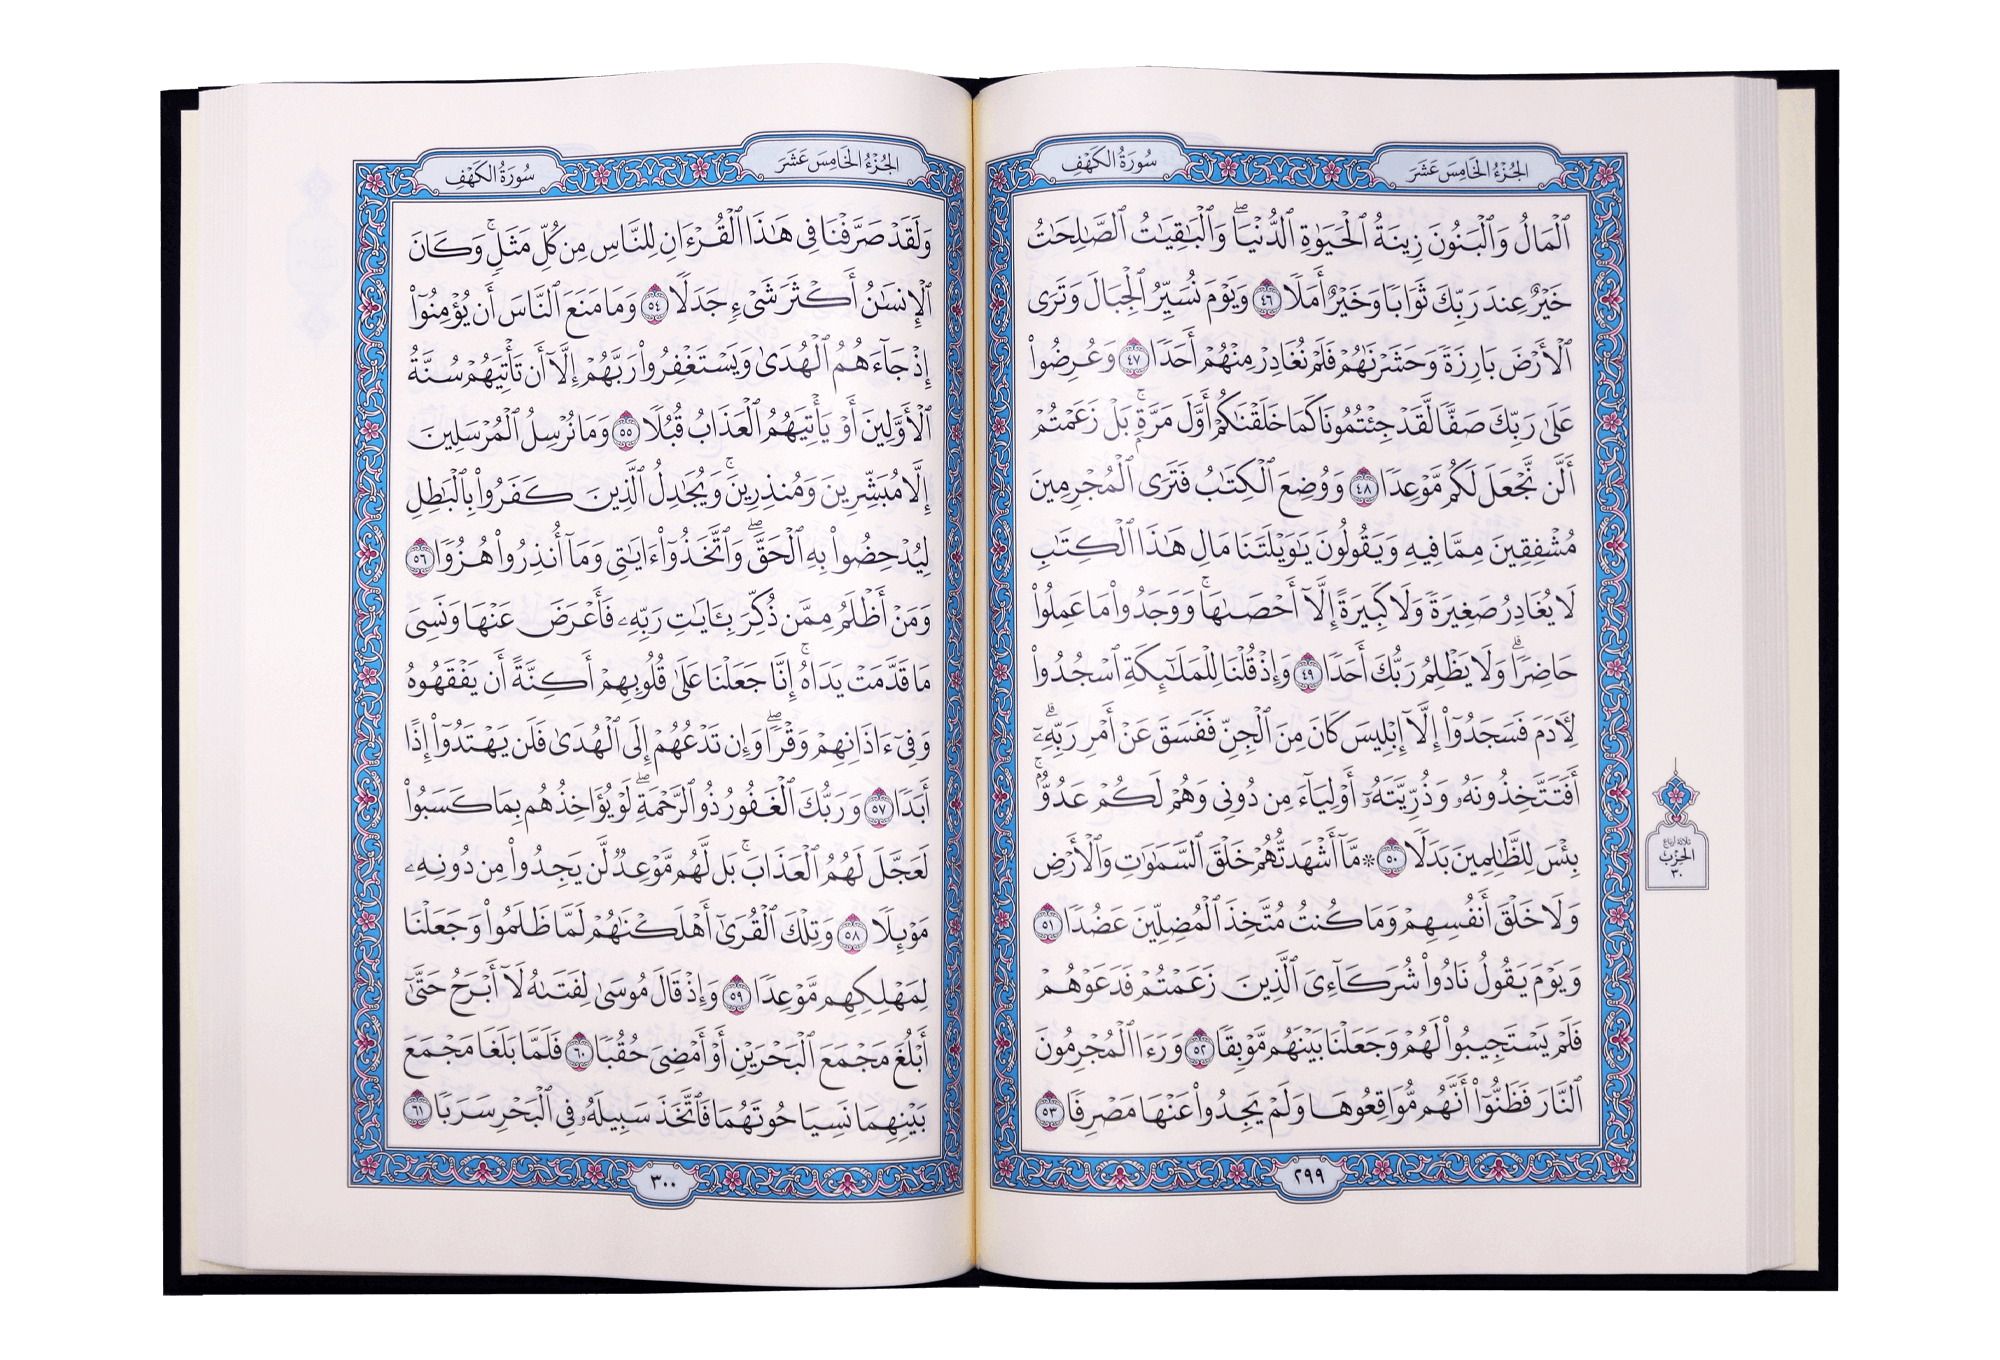 الجُزْءُ الخَامِسَ عَشَرَ
سُورَةُ الكَهْفِ
ٱلْمَالُ وَٱلْبَنُونَ زِينَةُ ٱلْحَيَوٰةِ ٱلدُّنْيَاۖ وَٱلْبَٰقِيَٰتُ ٱلصَّٰلِحَٰتُ
خَيْرٌ عِندَ رَبِّكَ ثَوَابًا وَخَيْرٌ أَمَلًا ٤٦ وَيَوْمَ نُسَيِّرُ ٱلْجِبَالَ وَتَرَى
ٱلْأَرْضَ بَارِزَةً وَحَشَرْنَٰهُمْ فَلَمْ نُغَادِرْ مِنْهُمْ أَحَدًا ٤٧ وَعُرِضُوا۟
عَلَىٰ رَبِّكَ صَفًّا لَّقَدْ جِئْتُمُونَا كَمَا خَلَقْنَٰكُمْ أَوَّلَ مَرَّةٍۭۚ بَلْ زَعَمْتُمْ
أَلَّن نَّجْعَلَ لَكُم مَّوْعِدًا ٤٨ وَوُضِعَ ٱلْكِتَٰبُ فَتَرَى ٱلْمُجْرِمِينَ
مُشْفِقِينَ مِمَّا فِيهِ وَيَقُولُونَ يَٰوَيْلَتَنَا مَالِ هَٰذَا ٱلْكِتَٰبِ
لَا يُغَادِرُ صَغِيرَةً وَلَا كَبِيرَةً إِلَّآ أَحْصَىٰهَاۚ وَوَجَدُوا۟ مَا عَمِلُوا۟
حَاضِرًاۗ وَلَا يَظْلِمُ رَبُّكَ أَحَدًا ٤٩ وَإِذْ قُلْنَا لِلْمَلَٰٓئِكَةِ ٱسْجُدُوا۟
لِءَادَمَ فَسَجَدُوٓا۟ إِلَّآ إِبْلِيسَ كَانَ مِنَ ٱلْجِنِّ فَفَسَقَ عَنْ أَمْرِ رَبِّهِۦٓۗ
أَفَتَتَّخِذُونَهُۥ وَذُرِّيَّتَهُۥٓ أَوْلِيَآءَ مِن دُونِى وَهُمْ لَكُمْ عَدُوٌّۢۚ
بِئْسَ لِلظَّٰلِمِينَ بَدَلًا ٥٠ ۞ مَّآ أَشْهَدتُّهُمْ خَلْقَ ٱلسَّمَٰوَٰتِ وَٱلْأَرْضِ
وَلَا خَلْقَ أَنفُسِهِمْ وَمَا كُنتُ مُتَّخِذَ ٱلْمُضِلِّينَ عَضُدًا ٥١
وَيَوْمَ يَقُولُ نَادُوا۟ شُرَكَآءِىَ ٱلَّذِينَ زَعَمْتُمْ فَدَعَوْهُمْ
فَلَمْ يَسْتَجِيبُوا۟ لَهُمْ وَجَعَلْنَا بَيْنَهُم مَّوْبِقًا ٥٢ وَرَءَا ٱلْمُجْرِمُونَ
ٱلنَّارَ فَظَنُّوٓا۟ أَنَّهُم مُّوَاقِعُوهَا وَلَمْ يَجِدُوا۟ عَنْهَا مَصْرِفًا ٥٣
٢٩٩
ثلاثة أرباع
الحزب
٣٠
الجُزْءُ الخَامِسَ عَشَرَ
سُورَةُ الكَهْفِ
وَلَقَدْ صَرَّفْنَا فِى هَٰذَا ٱلْقُرْءَانِ لِلنَّاسِ مِن كُلِّ مَثَلٍۚ وَكَانَ
ٱلْإِنسَٰنُ أَكْثَرَ شَىْءٍ جَدَلًا ٥٤ وَمَا مَنَعَ ٱلنَّاسَ أَن يُؤْمِنُوٓا۟
إِذْ جَآءَهُمُ ٱلْهُدَىٰ وَيَسْتَغْفِرُوا۟ رَبَّهُمْ إِلَّآ أَن تَأْتِيَهُمْ سُنَّةُ
ٱلْأَوَّلِينَ أَوْ يَأْتِيَهُمُ ٱلْعَذَابُ قُبُلًا ٥٥ وَمَا نُرْسِلُ ٱلْمُرْسَلِينَ
إِلَّا مُبَشِّرِينَ وَمُنذِرِينَۚ وَيُجَٰدِلُ ٱلَّذِينَ كَفَرُوا۟ بِٱلْبَٰطِلِ
لِيُدْحِضُوا۟ بِهِ ٱلْحَقَّۖ وَٱتَّخَذُوٓا۟ ءَايَٰتِى وَمَآ أُنذِرُوا۟ هُزُوًا ٥٦
وَمَنْ أَظْلَمُ مِمَّن ذُكِّرَ بِـَٔايَٰتِ رَبِّهِۦ فَأَعْرَضَ عَنْهَا وَنَسِىَ
مَا قَدَّمَتْ يَدَاهُۚ إِنَّا جَعَلْنَا عَلَىٰ قُلُوبِهِمْ أَكِنَّةً أَن يَفْقَهُوهُ
وَفِىٓ ءَاذَانِهِمْ وَقْرًاۖ وَإِن تَدْعُهُمْ إِلَى ٱلْهُدَىٰ فَلَن يَهْتَدُوٓا۟ إِذًا
أَبَدًا ٥٧ وَرَبُّكَ ٱلْغَفُورُ ذُو ٱلرَّحْمَةِۖ لَوْ يُؤَاخِذُهُم بِمَا كَسَبُوا۟
لَعَجَّلَ لَهُمُ ٱلْعَذَابَۚ بَل لَّهُم مَّوْعِدٌ لَّن يَجِدُوا۟ مِن دُونِهِۦ
مَوْئِلًا ٥٨ وَتِلْكَ ٱلْقُرَىٰٓ أَهْلَكْنَٰهُمْ لَمَّا ظَلَمُوا۟ وَجَعَلْنَا
لِمَهْلِكِهِم مَّوْعِدًا ٥٩ وَإِذْ قَالَ مُوسَىٰ لِفَتَىٰهُ لَآ أَبْرَحُ حَتَّىٰٓ
أَبْلُغَ مَجْمَعَ ٱلْبَحْرَيْنِ أَوْ أَمْضِىَ حُقُبًا ٦٠ فَلَمَّا بَلَغَا مَجْمَعَ
بَيْنِهِمَا نَسِيَا حُوتَهُمَا فَٱتَّخَذَ سَبِيلَهُۥ فِى ٱلْبَحْرِ سَرَبًا ٦١
٣٠٠